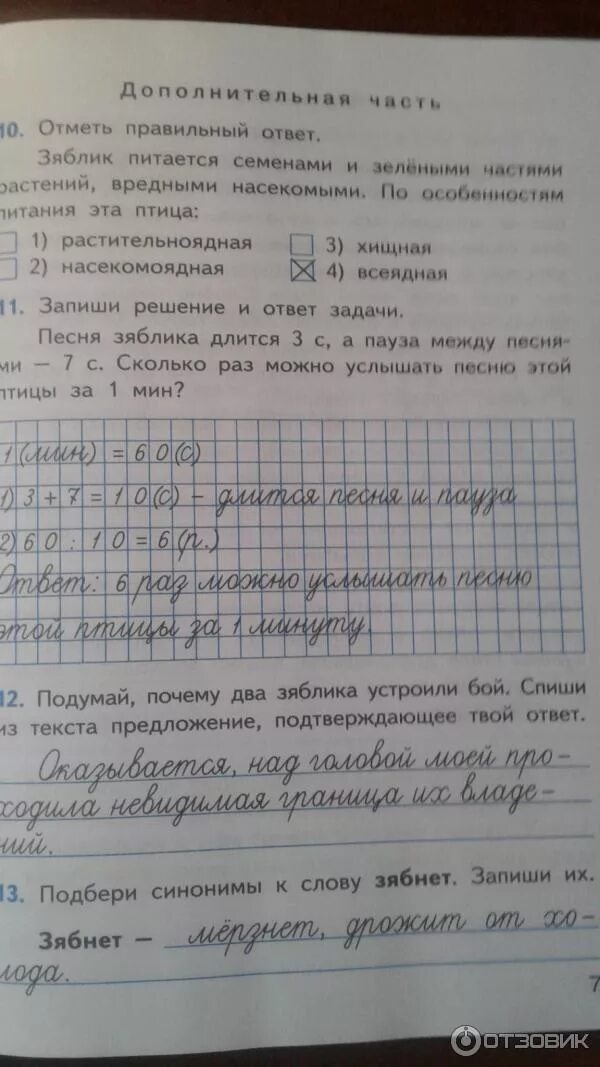 Дополнительная часть
10. Отметь правильный ответ.
Зяблик питается семенами и зелёными частями
растений, вредными насекомыми. По особенностям
питания эта птица:
1) растительноядная 3) хищная
2) насекомоядная 4) всеядная
11. Запиши решение и ответ задачи.
Песня зяблика длится 3 с, а пауза между песня-
ми — 7 с. Сколько раз можно услышать песню этой
птицы за 1 мин?
1 (мин) = 60 (с)
1) 3 + 7 = 10 (с) - длится песня и пауза
2) 60 : 10 = 6 (р.)
Ответ: 6 раз можно услышать песню
этой птицы за 1 минуту
12. Подумай, почему два зяблика устроили бой. Спиши
из текста предложение, подтверждающее твой ответ.
Оказывается, над головой моей про-
ходила невидимая граница их владе-
ний.
13. Подбери синонимы к слову зябнет. Запиши их.
Зябнет — мёрзнет, дрожит от хо-
лода.
7
ОТЗОВИК